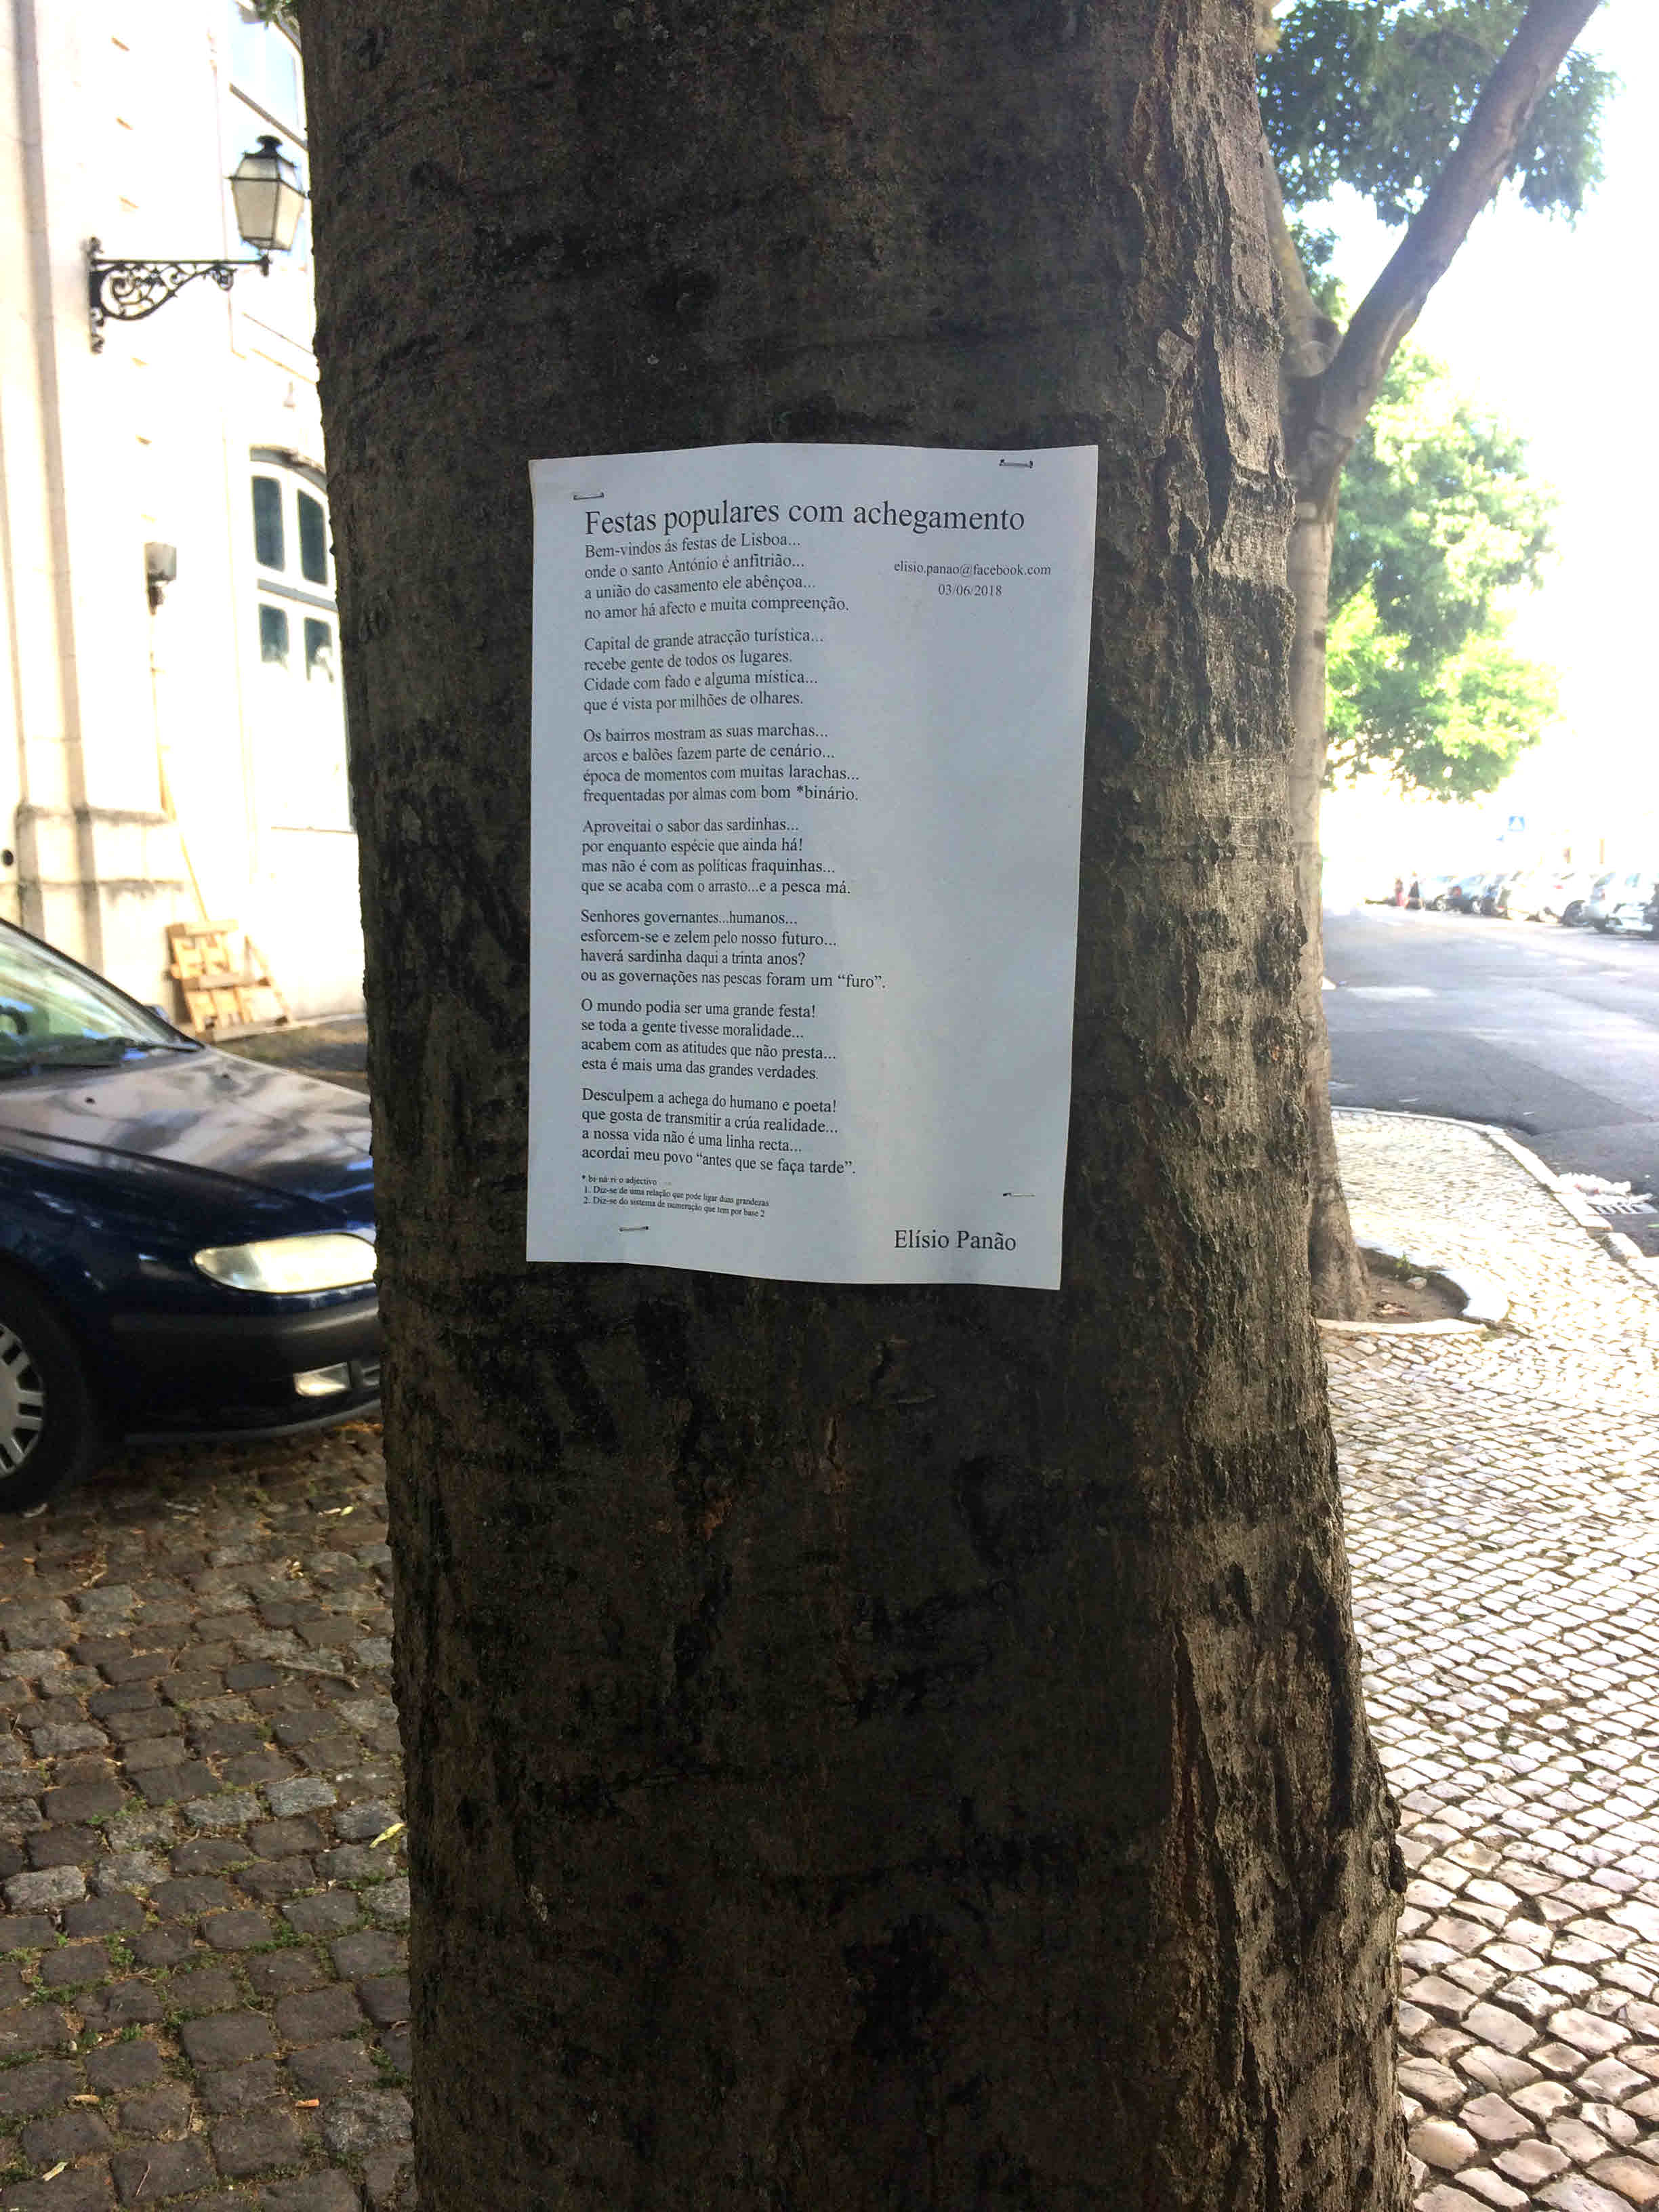 Festas populares com achegamento
Bem-vindos ás festas de Lisboa...
onde o santo António é anfitrião...
a união do casamento ele abênçoa...
no amor há afecto e muita compreenção.
elisio.panao@facebook.com
03/06/2018
Capital de grande atracção turística...
recebe gente de todos os lugares.
Cidade com fado e alguma mística...
que é vista por milhões de olhares.
Os bairros mostram as suas marchas...
arcos e balões fazem parte de cenário...
época de momentos com muitas larachas...
frequentadas por almas com bom *binário.
Aproveitai o sabor das sardinhas...
por enquanto espécie que ainda há!
mas não é com as políticas fraquinhas...
que se acaba com o arrasto...e a pesca má.
Senhores governantes...humanos...
esforcem-se e zelem pelo nosso futuro...
haverá sardinha daqui a trinta anos?
ou as governações nas pescas foram um “furo”.
O mundo podia ser uma grande festa!
se toda a gente tivesse moralidade...
acabem com as atitudes que não presta...
esta é mais uma das grandes verdades.
Desculpem a achega do humano e poeta!
que gosta de transmitir a crúa realidade...
a nossa vida não é uma linha recta...
acordai meu povo “antes que se faça tarde”.
* bi·ná·ri·o adjectivo
1. Diz-se de uma relação que pode ligar duas grandezas
2. Diz-se do sistema de numeração que tem por base 2
Elísio Panão